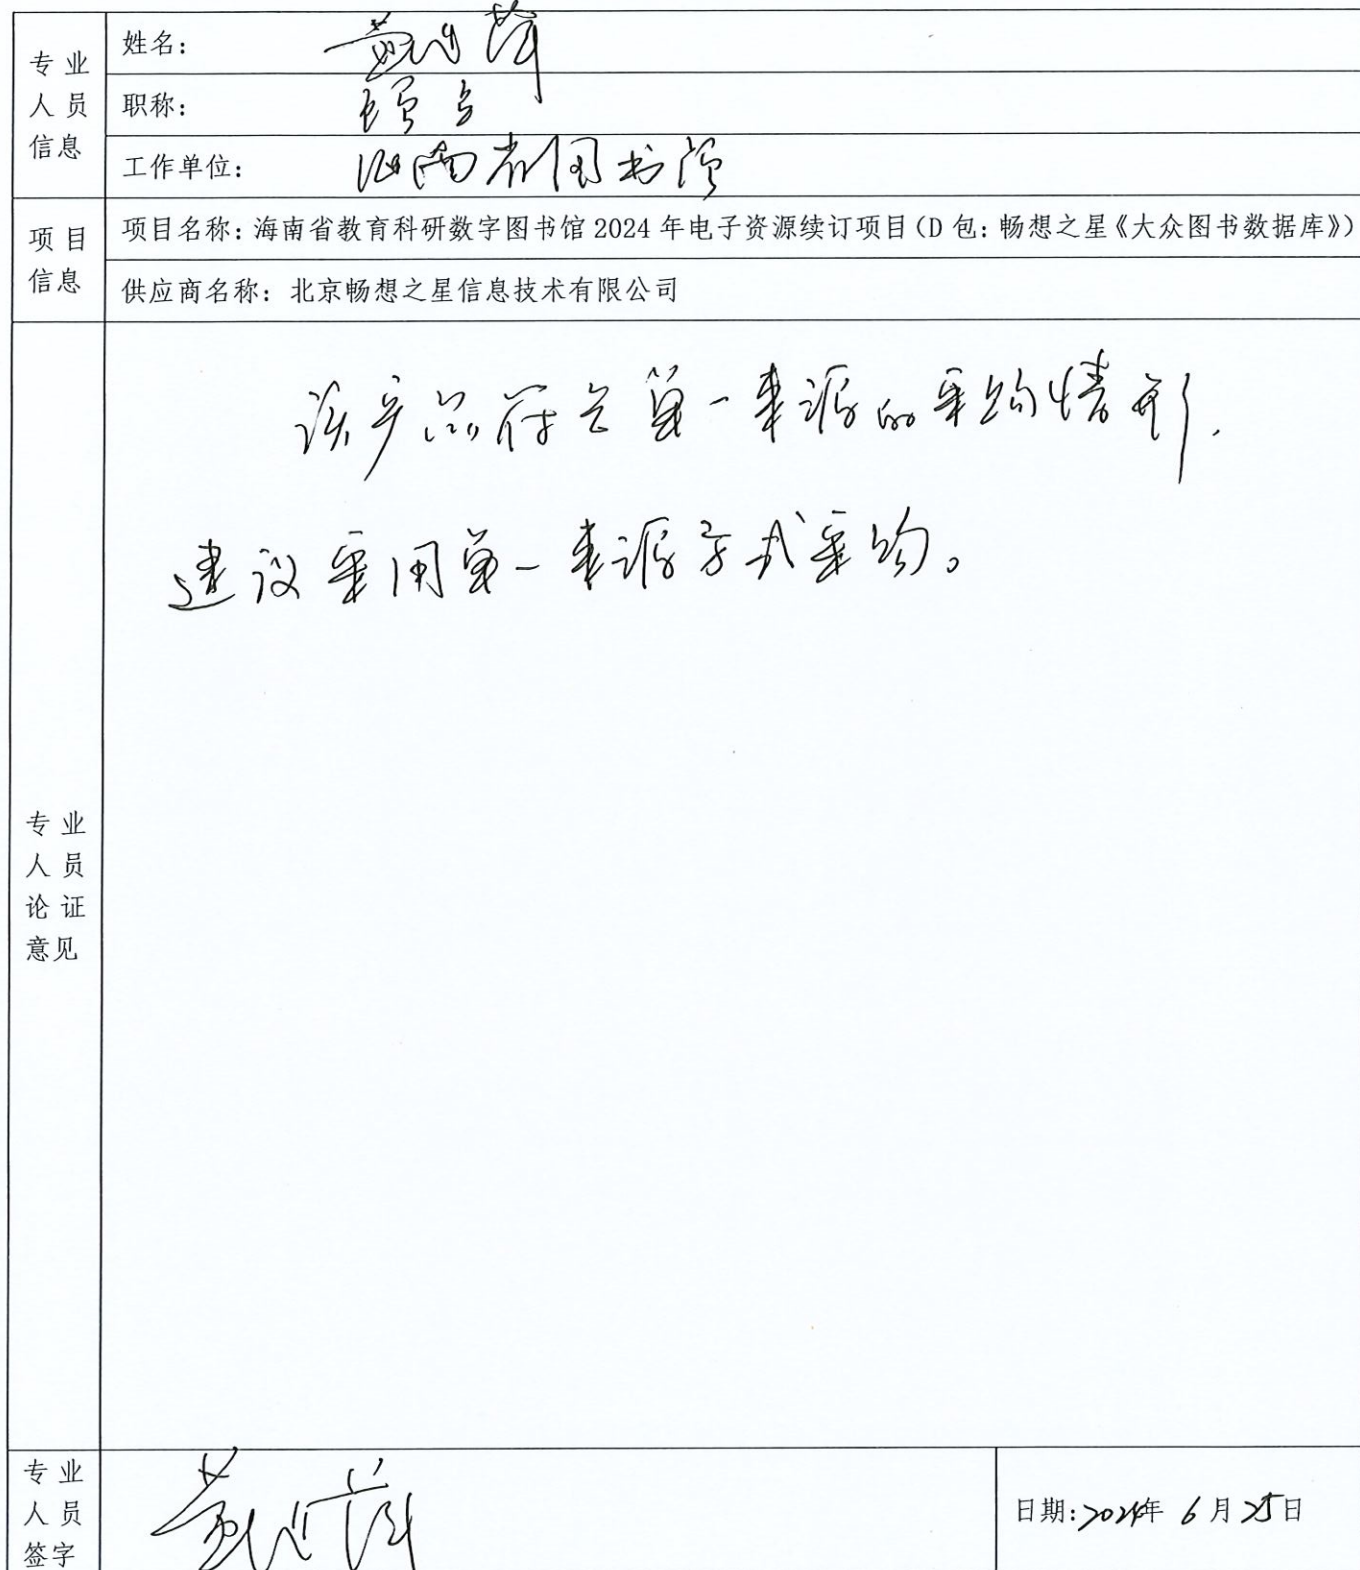 专业人员信息
姓名：
职称：馆员
工作单位：海南省图书馆
项目信息
项目名称：海南省教育科研数字图书馆 2024 年电子资源续订项目（D 包：畅想之星《大众图书数据库》）
供应商名称：北京畅想之星信息技术有限公司
专业人员论证意见
该产品符合单一来源的采购情形，
建议采用单一来源方式采购。
专业人员签字
日期：2024年 6 月 25日